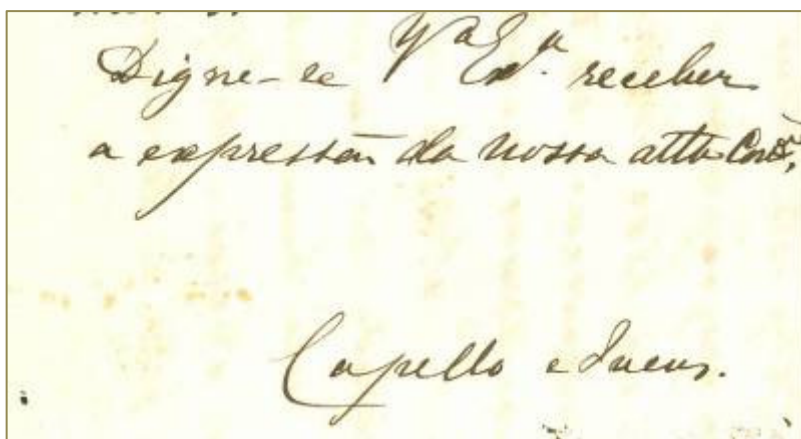 Digne-se Vª Exª. receber
a expressão da nossa attª Consª,
Capello e Ivens.